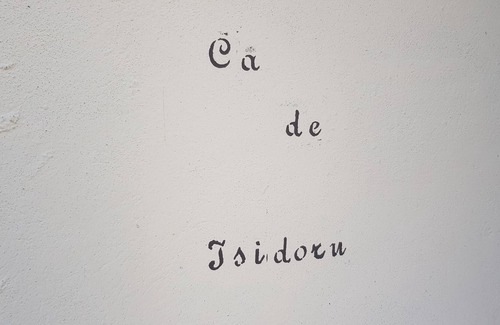 Ca
de
Isidoru